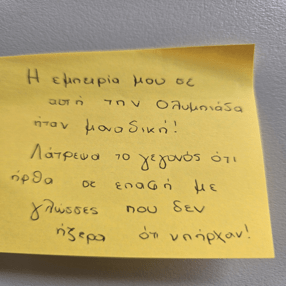 Η εμπειρία μου σε
αυτή την Ολυμπιάδα
ήταν μοναδική!
Λάτρεψα το γεγονός ότι
ήρθα σε επαφή με
γλώσσες που δεν
ήξερα ότι υπήρχαν!